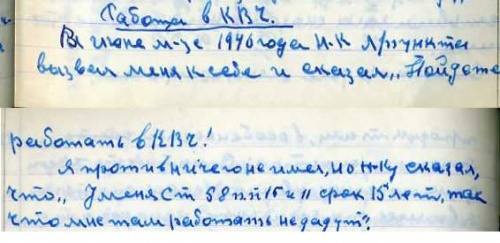 Работа в КВЧ.
В июне м-це 1946 года Н-К Л/пункта
вызвал меня к себе и сказал „Пойдете
работать в КВЧ!
Я против ничего не имел, но Н-Ку сказал,
что „У меня Ст 58 пп 1б и 11 срок 15 лет, так
что мне там работать не дадут?